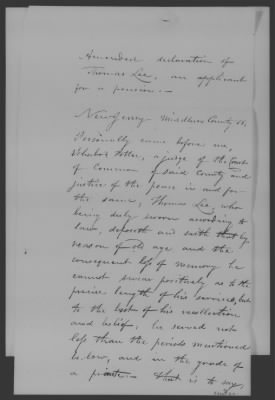 Amended declaration of
Thomas Lee, an applicant
for a pension.—
New Jersey Middlesex County ss.
Personally came before me,
Potter, a judge of the Court
of Common of said County and
justice of the peace in and for
the same, Thomas Lee, who
being duly sworn according to
law, deposeth and saith that by
reason of old age and the
consequent loss of memory he
cannot swear positively as to the
precise length of his services, but
to the best of his recollection
and belief, he served not
less than the periods mentioned
below, and in the grade of
a private— that is to say,